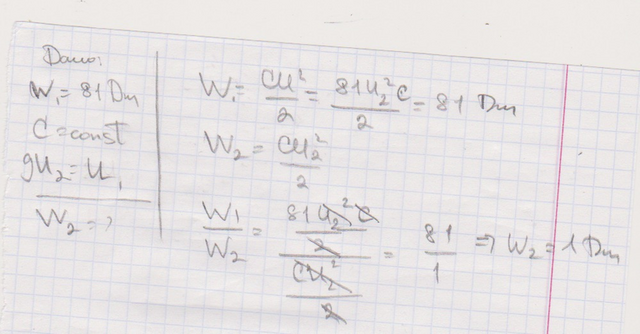 Дано:
W₁ = 81 Дж
C = const
9U₂ = U₁
W₂ = ?
W₁ = CU²/2 = 81U₂²C/2 = 81 Дж
W₂ = CU₂²/2
W₁/W₂ = (81U₂²C/2)/(CU₂²/2) = 81/1 => W₂ = 1 Дж